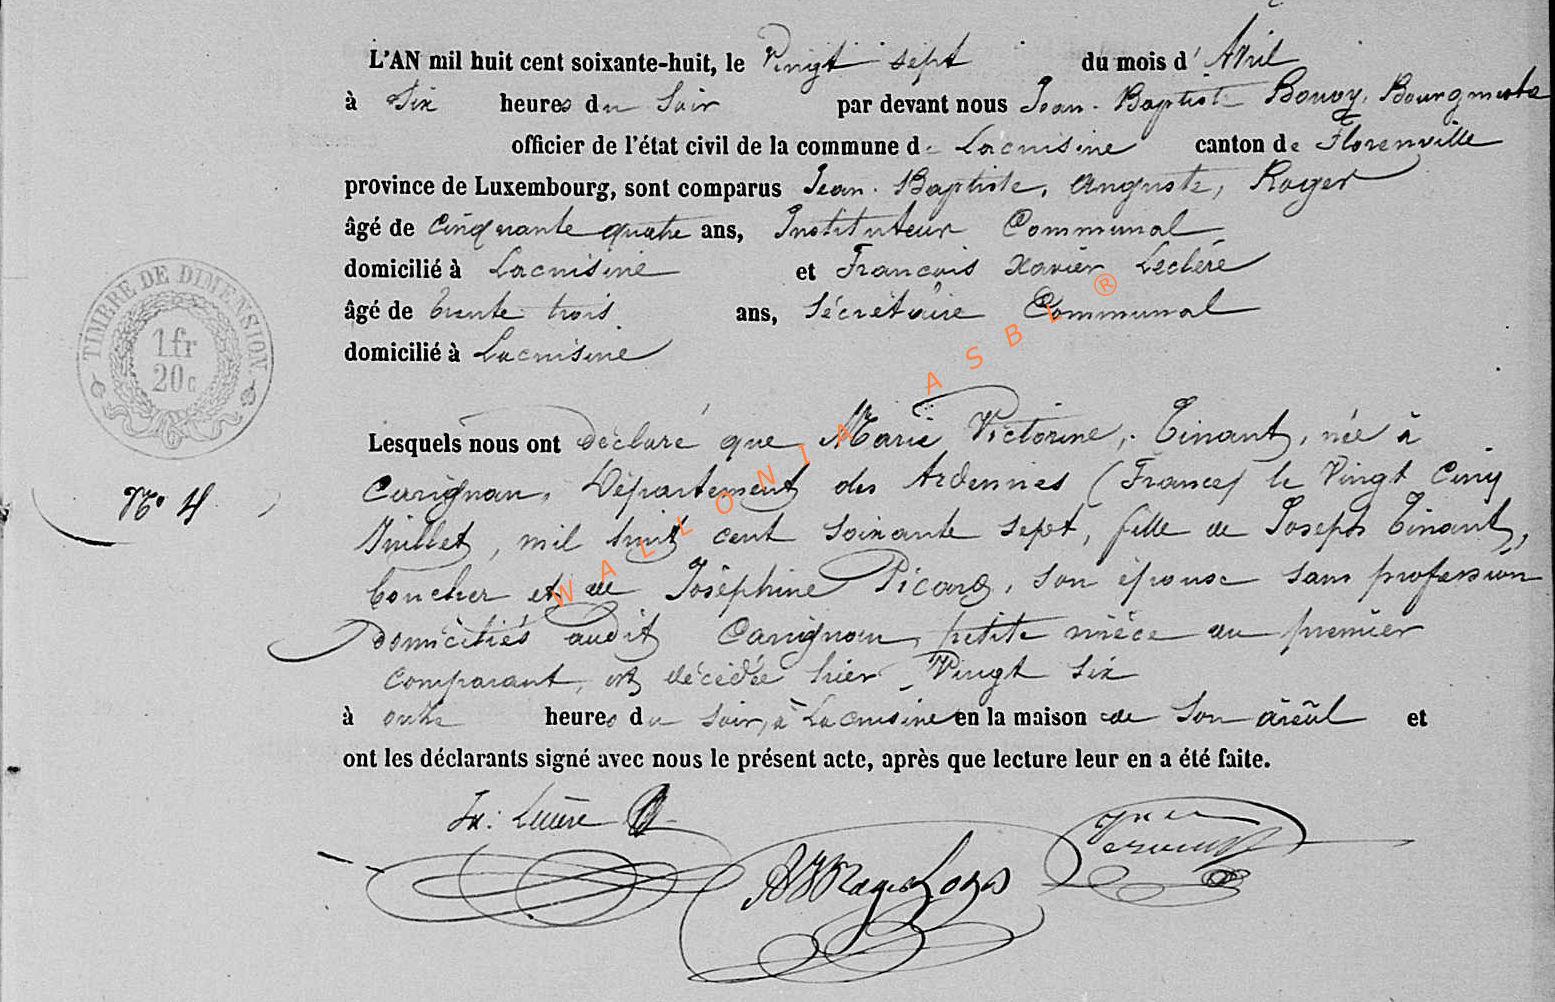 L'AN mil huit cent soixante-huit, le Vingt sept du mois d' Avril
à Six heures du Soir par devant nous Jean-Baptiste Bouvy, Bourgmestre
officier de l'état civil de la commune de Lacuisine canton de Florenville
province de Luxembourg, sont comparus Jean-Baptiste, Auguste, Roger
âgé de Cinquante quatre ans, Instituteur Communal
domicilié à Lacuisine et Francois Xavier Leclère
âgé de trente trois ans, Sécrétaire Communal
domicilié à Lacuisine
TIMBRE DE DIMENSION
1 fr
20 c
Lesquels nous ont déclaré que Marie Victorine, Tinant, née à
N° 4
Carignan, Département des Ardennes (France) le Vingt Cinq
Juillet, mil huit cent soixante sept, fille de Joseph Tinant,
boucher et de Joséphine Picard, son épouse sans profession
domiciliés audit Carignan, petite nièce du premier
comparant, est décédée hier Vingt six
à onze heures du Soir, à Lacuisine en la maison de Son aïeul et
ont les déclarants signé avec nous le présent acte, après que lecture leur en a été faite.
WALLONIA ASBL ®